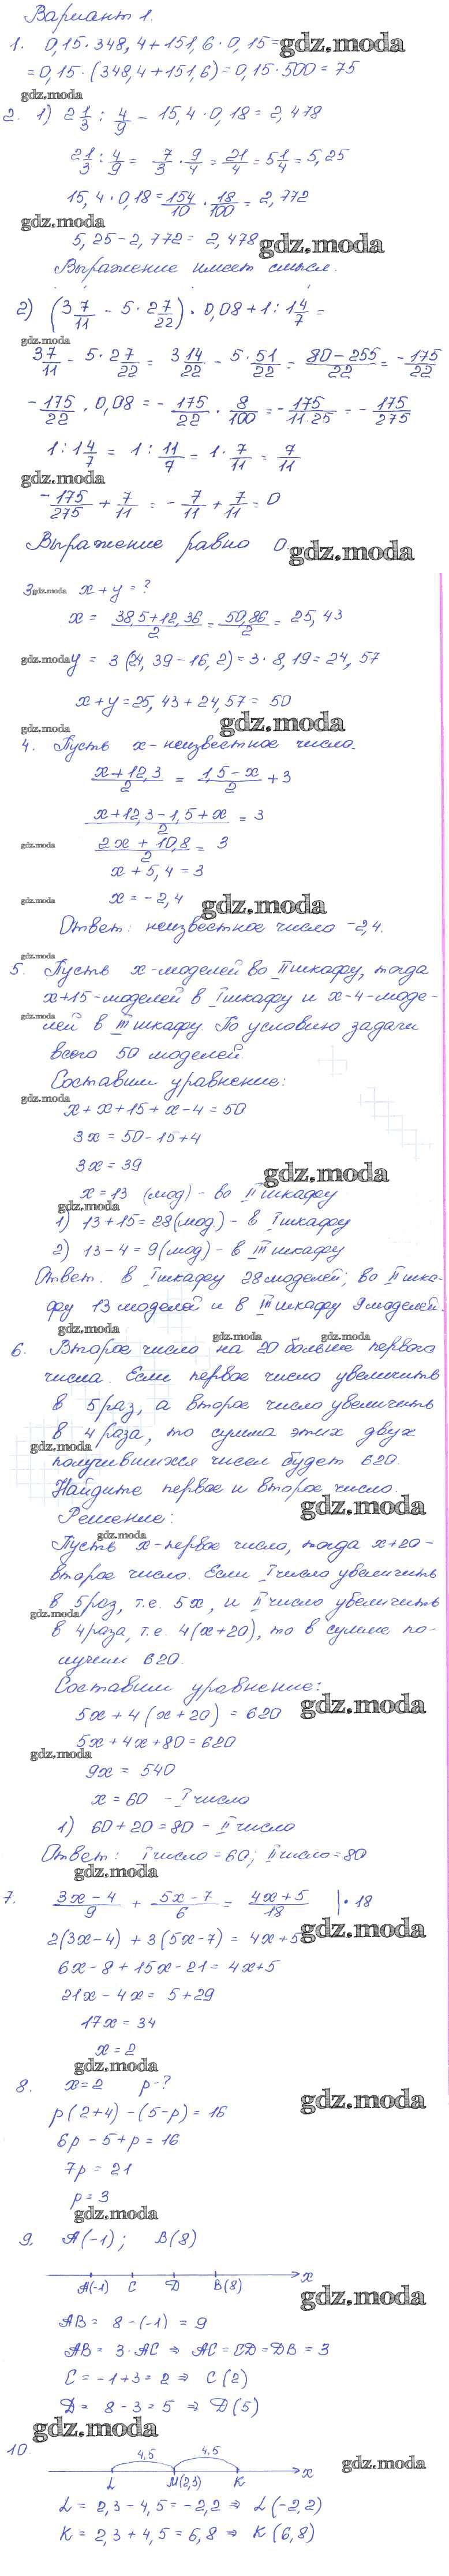 Вариант 1.
1. 0,15·348,4+151,6·0,15= gdz.moda
=0,15·(348,4+151,6)=0,15·500=75
gdz.moda
2. 1) 2 1/3 : 4/9 - 15,4·0,18 = 2,478
2 1/3 : 4/9 = 7/3 · 9/4 = 21/4 = 5 1/4 = 5,25
15,4·0,18 = 154/10 · 18/100 = 2,772
gdz.moda
5,25-2,772= 2,478 gdz.moda
Выражение имеет смысл.
2) (3 7/11 - 5·27/22) · 0,08+1:1 4/7 =
gdz.moda
37/11 - 5·27/22 = 3 14/22 - 5·51/22 = 80-255/22 = -175/22
-175/22 · 0,08 = - 175/22 · 8/100 = -175/11·25 = -175/275
1:1 4/7 = 1: 11/7 = 1· 7/11 = 7/11
gdz.moda
-175/275 + 7/11 = - 7/11 + 7/11 = 0
Выражение равно 0 gdz.moda
3. gdz.moda x+y=?
x = 38,5+12,36/2 = 50,86/2 = 25,43
gdz.moda y = 3(24,39-16,2)=3·8,19=24,57
x+y=25,43+24,57= 50
gdz.moda gdz.moda
4. Пусть x-неизвестное число.
x+12,3/2 = 1,5-x/2 +3
x+12,3-1,5+x/2 = 3
gdz.moda 2x+10,8/2 = 3
x+5,4=3
gdz.moda x = -2,4 gdz.moda
Ответ: неизвестное число -2,4.
gdz.moda
5. Пусть x-моделей во II шкафу, тогда
x+15-моделей в I шкафу и x-4-моде-
gdz.moda
лей в III шкафу. По условию задачи
всего 50 моделей.
Составим уравнение:
gdz.moda
x+x+15+x-4=50
3x=50-15+4
3x=39
gdz.moda
x=13 (мод)- во II шкафу
gdz.moda
1) 13+15=28(мод)- в I шкафу
2) 13-4=9(мод)- в III шкафу
Ответ. в I шкафу 28 моделей; во II шка-
фу 13 моделей и в III шкафу 9 моделей.
gdz.moda gdz.moda gdz.moda
6. Второе число на 20 больше первого
числа. Если первое число увеличить
в 5 раз, а второе число увеличить
в 4 раза, то сумма этих двух
gdz.moda
получившихся чисел будет 620.
Найдите первое и второе число.
gdz.moda
Решение:
gdz.moda
Пусть x-первое число, тогда x+20-
второе число. Если I число увеличить
в 5 раз, т.е. 5x, и II число увеличить
gdz.moda
в 4 раза, т.е. 4(x+20), то в сумме по-
лучим 620.
Составим уравнение:
5x+4(x+20) = 620 gdz.moda
5x+4x+80=620
gdz.moda
9x = 540
x=60 - I число
1) 60+20=80 - II число
Ответ: I число=60; II число=80
gdz.moda
7. 3x-4/9 + 5x-7/6 = 4x+5/18 |·18
2(3x-4)+3(5x-7) = 4x+5 gdz.moda
6x-8+15x-21=4x+5
21x-4x= 5+29
17x=34
x=2
gdz.moda
8. x=2 p-?
gdz.moda
p(2+4)-(5-p)=16
6p-5+p=16
7p=21
p=3
gdz.moda
9. A(-1); B(8)
A(-1) C D B(8) x
gdz.moda
AB= 8-(-1)=9
AB= 3·AC ⇒ AC=CD=DB=3
C=-1+3=2 ⇒ C(2)
D= 8-3=5 ⇒ D(5)
gdz.moda
10. 4,5 4,5
L M(2,3) K x gdz.moda
L=2,3-4,5=-2,2 ⇒ L(-2,2)
K=2,3+4,5=6,8 ⇒ K(6,8)